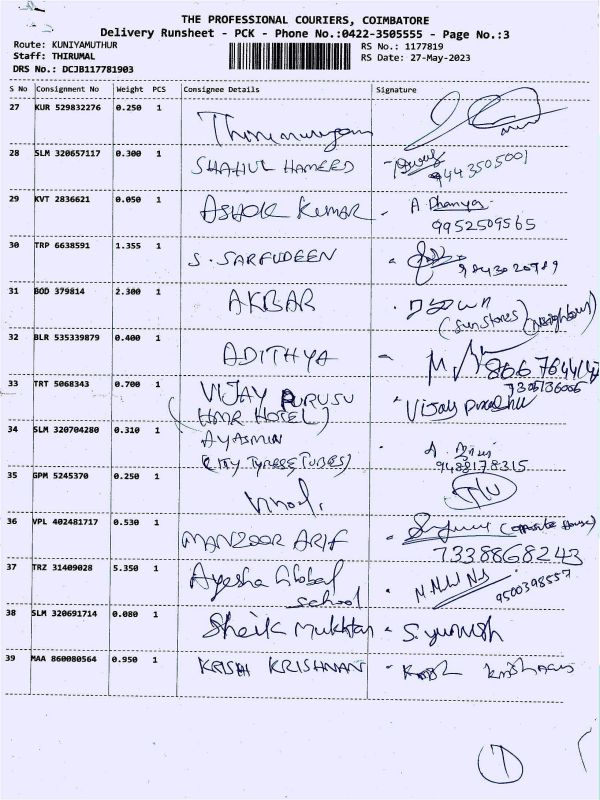 THE PROFESSIONAL COURIERS, COIMBATORE
Delivery Runsheet - PCK - Phone No.:0422-3505555 - Page No.:3
Route: KUNIYAMUTHUR
RS No.: 1177819
Staff: THIRUMAL
RS Date: 27-May-2023
DRS No.: DCJB117781903
S No Consignment No Weight PCS Consignee Details Signature
27 KUR 529832276 0.250 1
Thirumurugan
28 SLM 320657117 0.300 1 SHAHUL HAMEED
9443505001
29 KVT 2836621 0.050 1 ASHOK KUMAR - A Dhanya
9952509565
30 TRP 6638591 1.355 1 S. SARFUDEEN
31 BOD 379814 2.300 1 AKBAR
(Sun stores) (Neighbour)
32 BLR 535339879 0.400 1 ADITHYA
33 TRT 5068343 0.700 1 VIJAY PURUSU
7305136006
(HMR HOTEL) Vijay
34 SLM 320704280 0.310 1 AYASMIN
(CITY TYRES & TUBES) 9488178315
35 GPM 5245370 0.250 1 Vinod.
36 VPL 402481717 0.530 1 MANZOOR ARIF (opposite House)
7338868243
37 TRZ 31409028 5.350 1 Ayesha Global
school 9500398557
38 SLM 320691714 0.080 1 Sheik Mukhtar - S.yunush
39 MAA 860080564 0.950 1 KRISH KRISHNAN
1